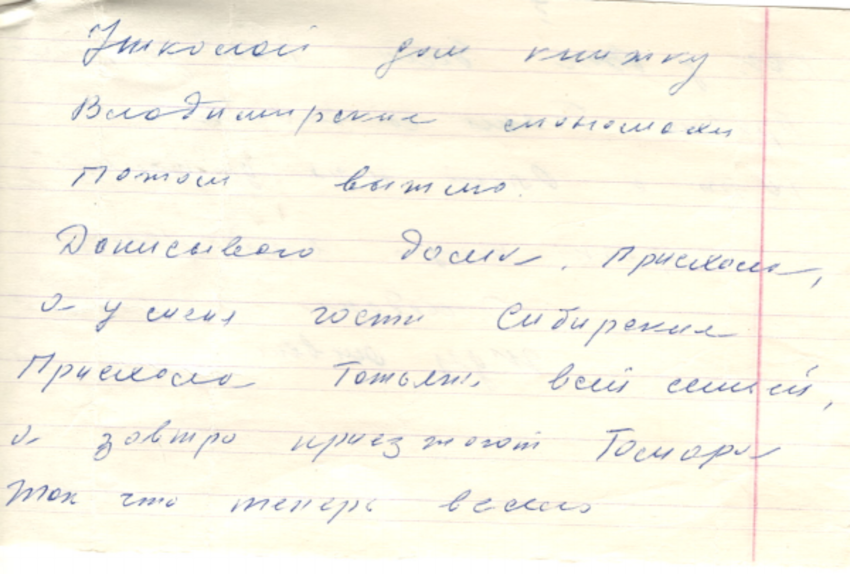 дам книжку
Владимирские мономахи
Потом вышлю.
Дописываю дома. Приехала,
а у меня гости Сибирские
Приехала Татьяна всей семьей,
а завтра приезжают Тамара
так что теперь весело